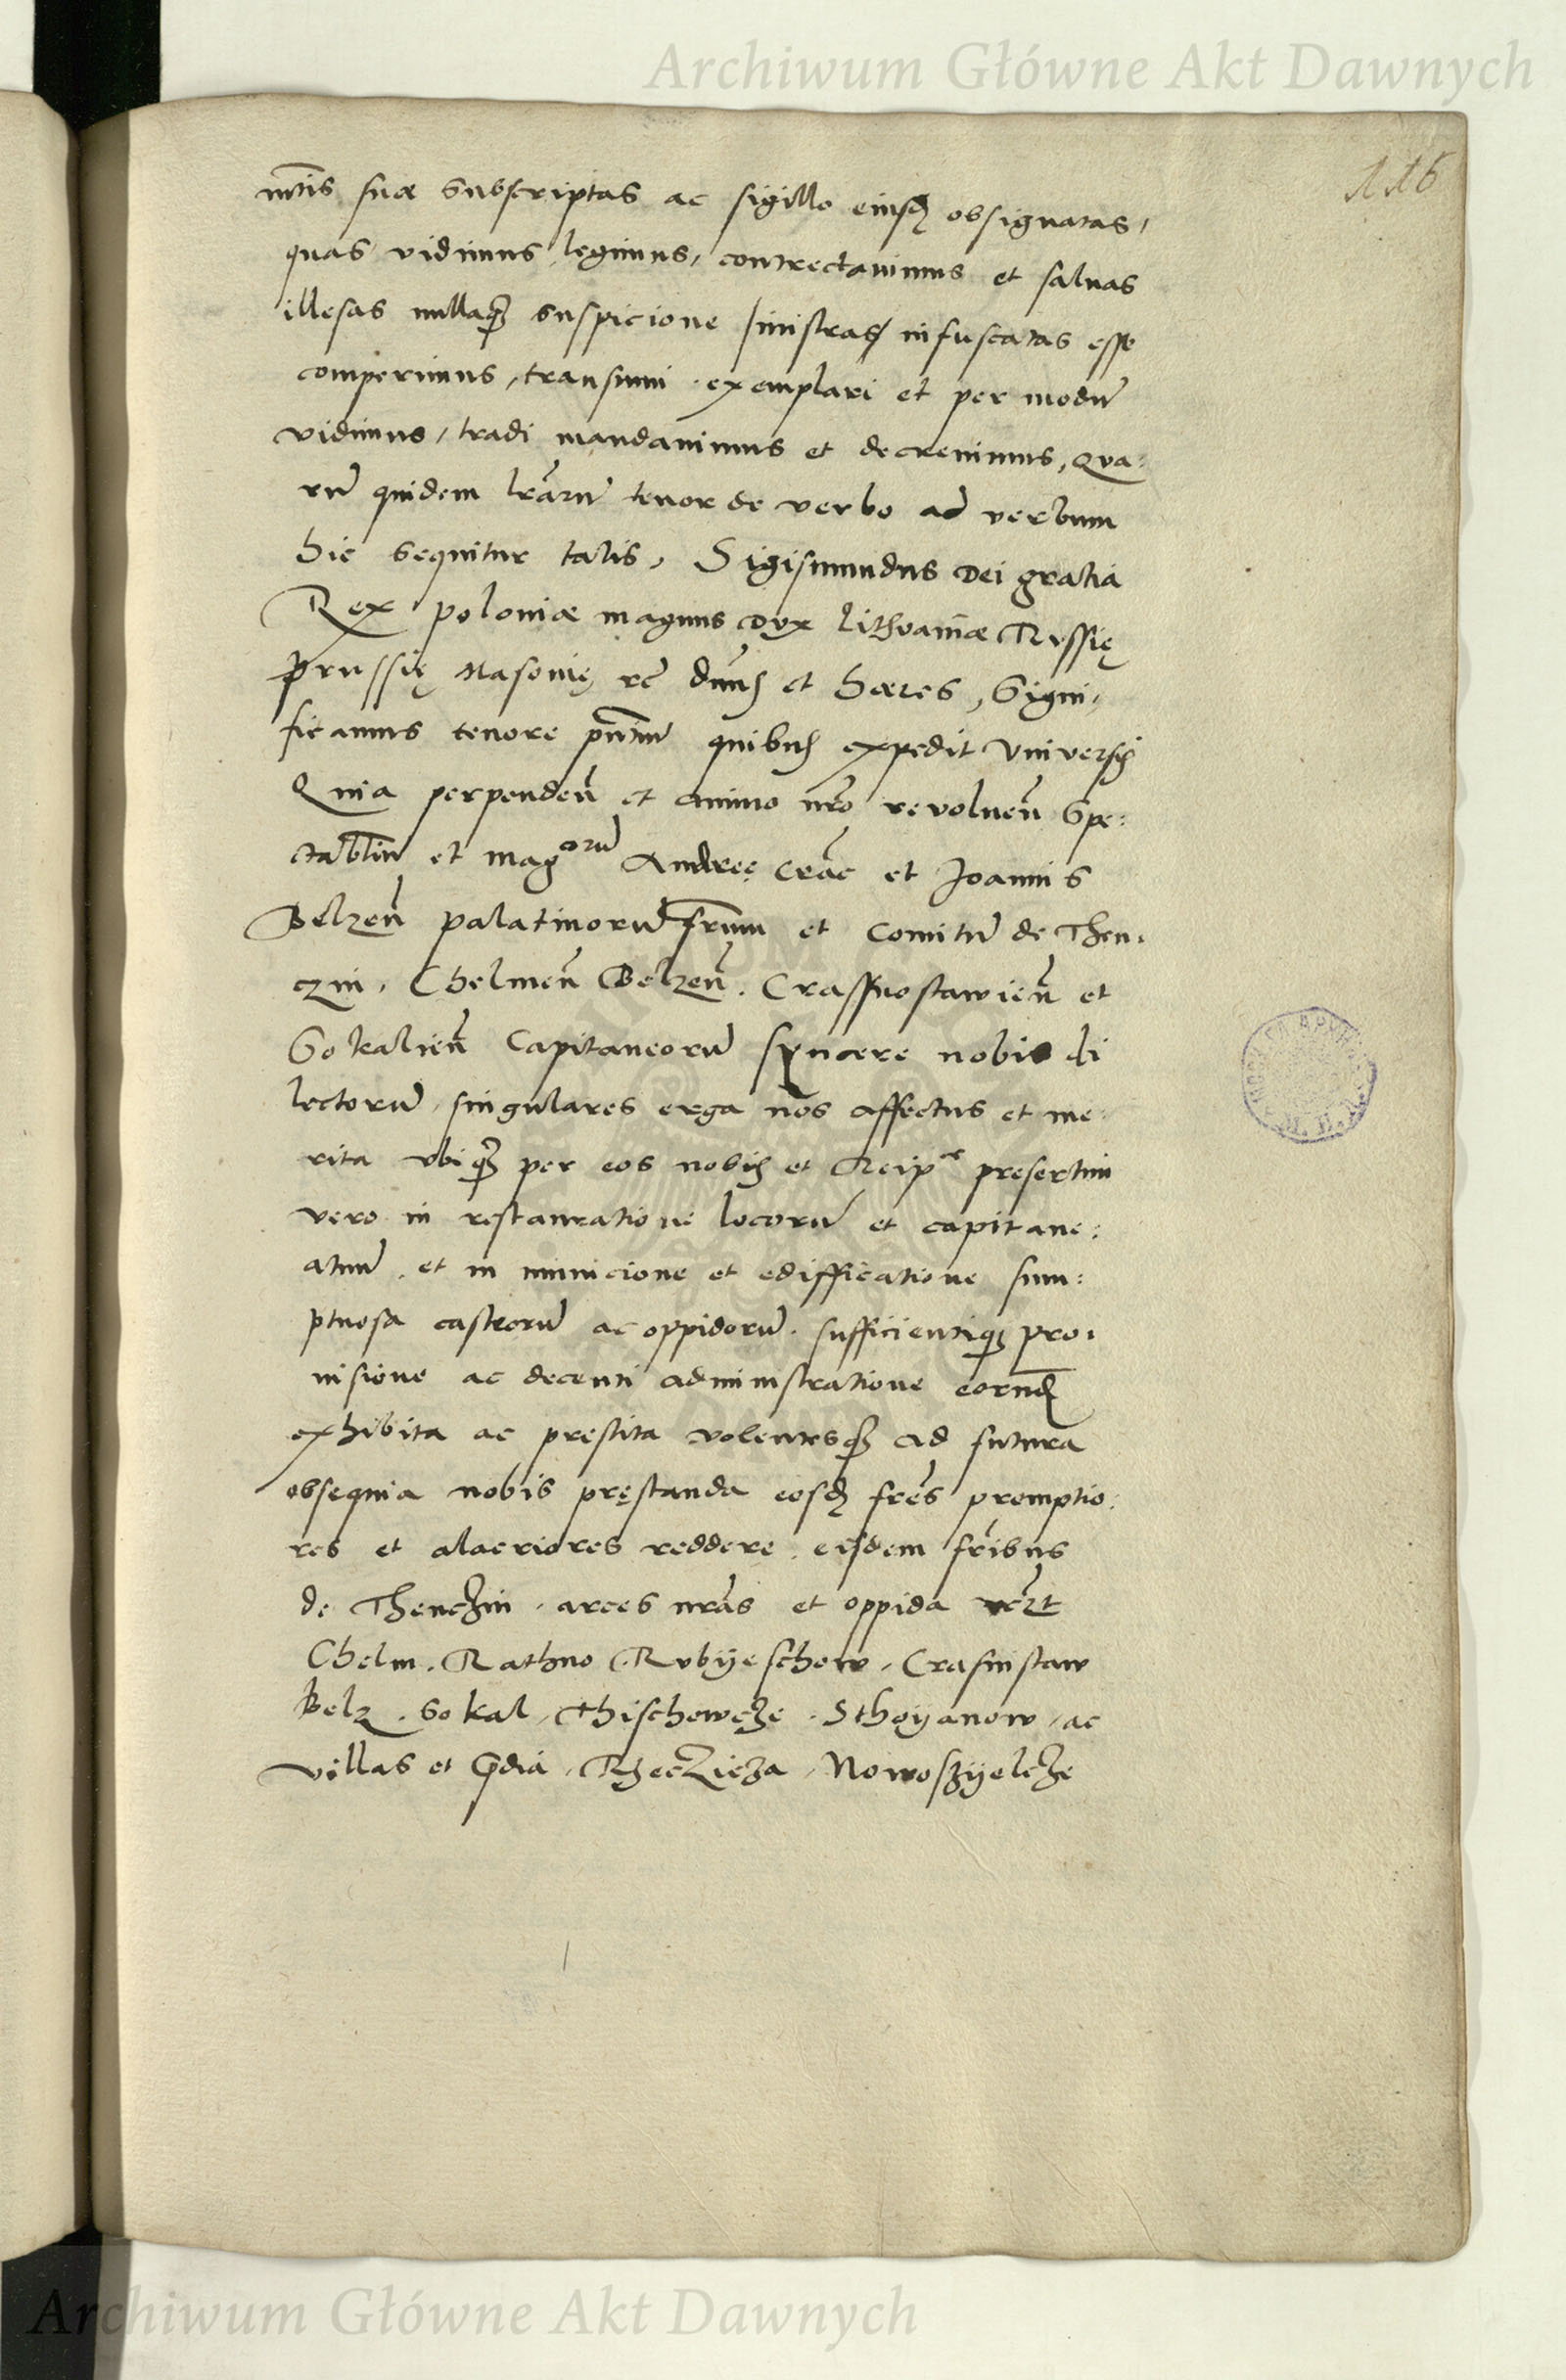 Archiwum Główne Akt Dawnych
116
mtis suæ subscriptas ac sigillo eiusd obsignatas,
quas vidimus, legimus, contrectavimus et salvas
illesas nullaque suspicione sinistras infuscatas esse
comperimus, transumi exemplari et per modū
vidimus, tradi mandavimus et decrevimus, Qua:
rū quidem lrārū tenor de verbo ad verbum
hic sequitur talis, Sigismundus Dei gratia
Rex poloniæ magnus Dux Lithvaniæ Rvssię
Prussię Masovię rc dnus et hæres, Signi,
ficamus tenore pntiū quibus expedit Vniversis
Quia perpenden et animo nro revolven Spe:
ctabliū et magcorū Andreę Crac et Joannis
Belzen palatinorū frum et Comitū de Then,
czin, Chelmen Belzen. Crassnostawien et
Sokalien Capitaneorū syncere nobis di
lectorū, singulares erga nos affectus et me:
rita vbique per eos nobis et Reipce presertim
vero in restauratione locorū et capitane:
atuū, et in municione et edifficatione sum:
ptuosa castrorū ac oppidorū. sufficientique pro,
visione ac decenti administratione eorund
exhibita ac prestita volentesque ad futura
obsequia nobis pręstanda eosd fres promptio:
res et alacriores reddere, eisdem fribus
de Thenczin, arces nras et oppida vczt
Chelm. Rathno Rvbyeschow, Crasnistaw
Belz, Sokal, Thischowcze, Sthoyanow, ac
villas et pdia, Rzeczicza, Nowoszyelcze
Archiwum Główne Akt Dawnych